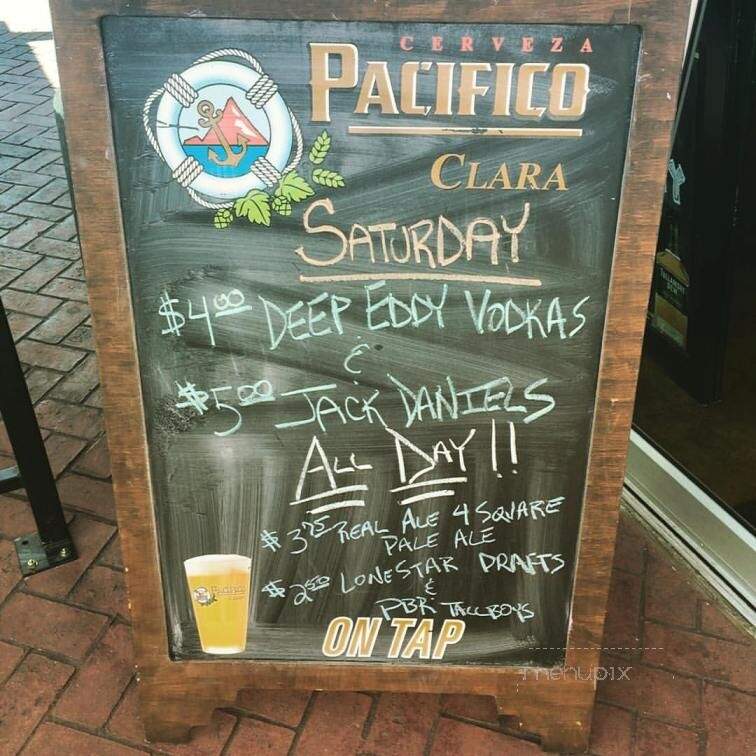 CERVEZA
PACIFICO
CLARA
SATURDAY
$4.00 DEEP EDDY VODKAS
&
$5.00 JACK DANIELS
ALL DAY!!
$3.75 REAL ALE 4 SQUARE
PALE ALE
$2.50 LONESTAR DRAFTS
&
PBR TALLBOYS
ON TAP
menupix